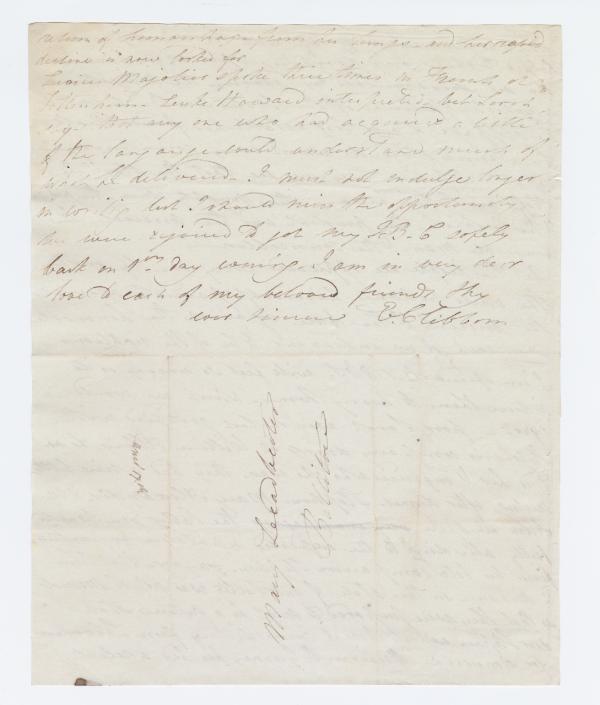 return of hemorrhage from her lungs - and her rapid
decline is now looked for
Majolier spoke three times in French at
Luke Howard interpreted, but
say that any one who had acquired a little
of the language could understand much of
what he delivered - I must not indulge longer
in writing lest I should miss the opportunity
we were rejoiced to get my J B C safely
back on 1st day evening - I am in very dear
love to each of my beloved friends thy
ever sincere E. Clibborn
Mary Leadbeater
Ballitore